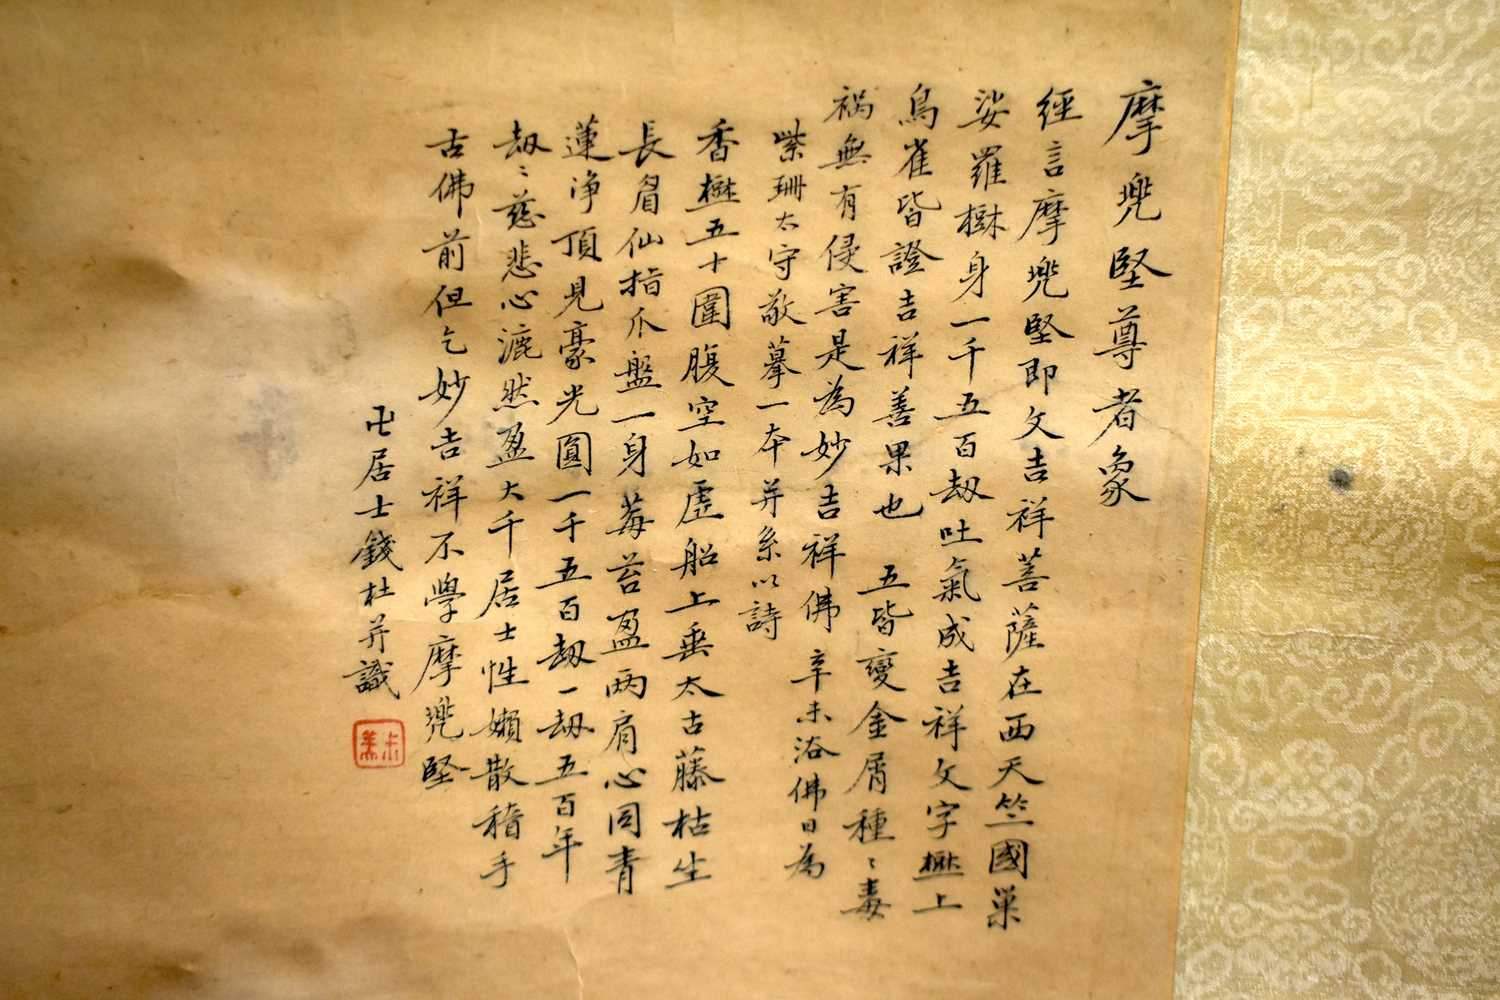 摩兜堅尊者象
經言摩兜堅即文吉祥菩薩在西天竺國巢
娑羅樹身一千五百劫吐氣成吉祥文字樹上
鳥雀皆證吉祥善果也 五皆變金屑種〻毒
禍無有侵害是為妙吉祥佛 辛未浴佛日為
紫珊太守敬摹一本并系以詩
香樹五十圍腹空如虛船上垂太古藤枯生
長眉仙指爪盤一身莓苔盈兩肩心同青
蓮淨頂見豪光圓一千五百劫一劫五百年
劫〻慈悲心漉然盈大千居士性嬾散稽手
古佛前但乞妙吉祥不學摩兜堅
卍居士錢杜并識